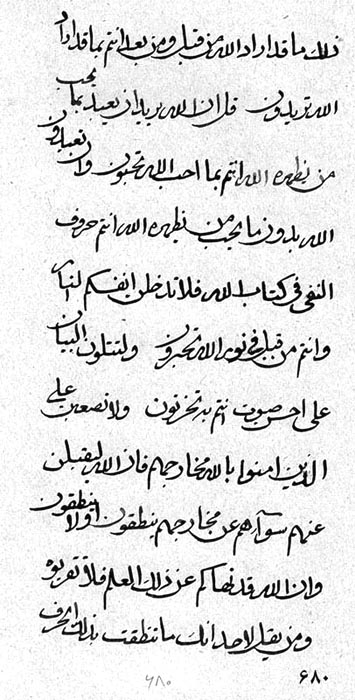 ذلك ما قد اراد الله من قبل ومن بعد انتم بما قد اراد
الله تريدون قل ان الله يريد ان يعبد بما يحب
من يظهره الله انتم بما احب الله تحبون وان تعبدون
الله بدون ما يحب من يظهره الله انتم حروف
النفى فى كتاب الله فلا تدخلن انفسكم النار
وانتم من قبل فى نور الله تحبرون ولتتلون البيان
على احسن صوت انتم به تحزنون ولا تصعبن على
الذين امنوا بالله مخارجهم فان الله ليقبلن
عنهم سوآء هم عن مخارجهم ينطقون او لا ينطقون
وان الله قد نهاكم عن ذلك العلم فلا تقربوه
ومن يقل لاحد انك ما تنطقت بذلك الحرف
٦٨٠
٦٨٠